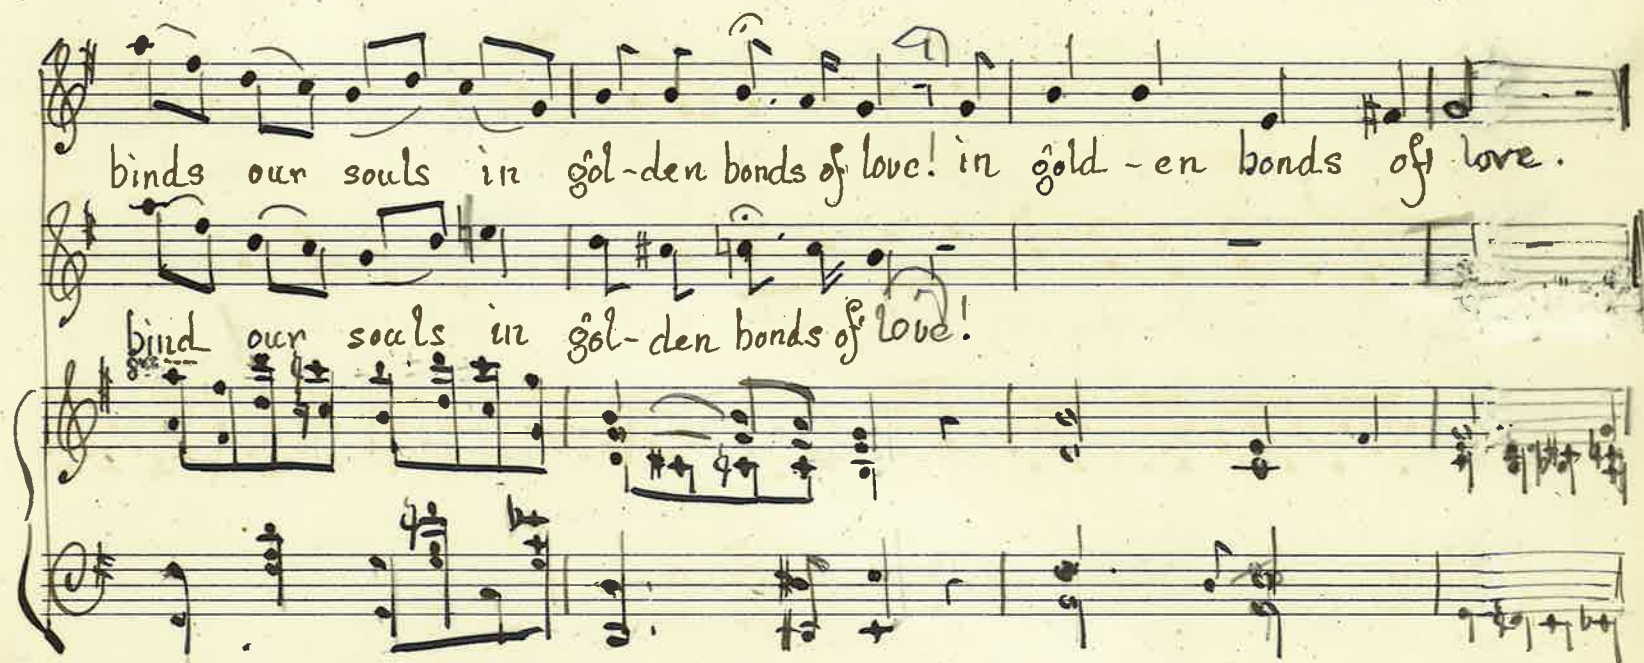 binds our souls in gôl-den bonds of love! in gôld-en bonds of love.
bind our souls in gôl-den bonds of love!